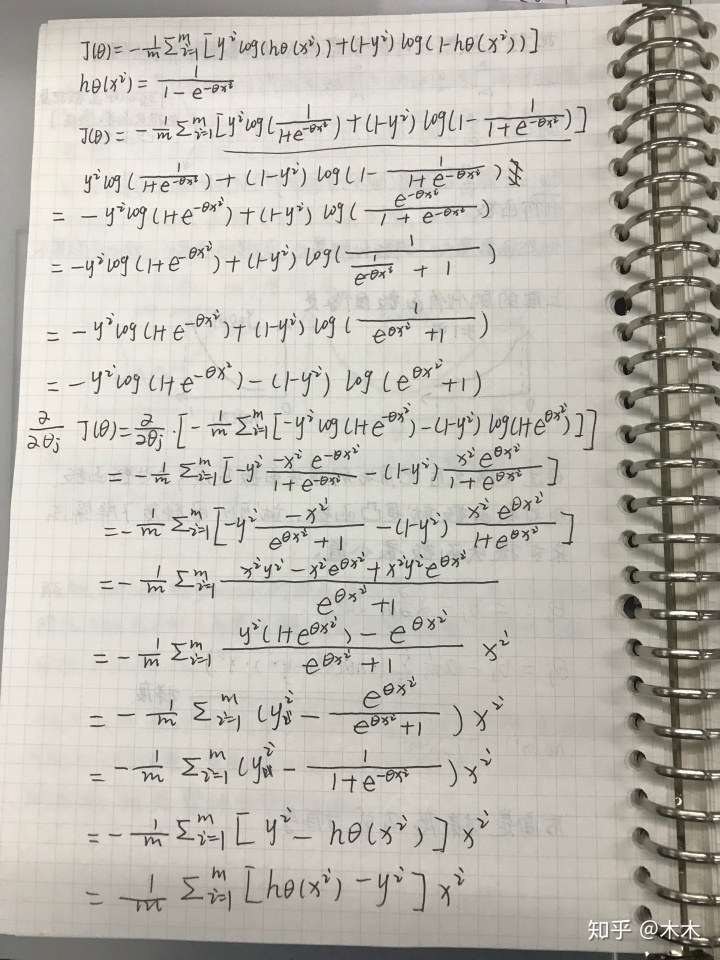 J(θ) = -1/m Σ_{i=1}^m [y^i log(hθ(x^i)) + (1-y^i) log(1-hθ(x^i))]
hθ(x^i) = 1/(1 - e^{-θx^i})
J(θ) = -1/m Σ_{i=1}^m [y^i log(1/(1+e^{-θx^i})) + (1-y^i) log(1 - 1/(1+e^{-θx^i}))]
y^i log(1/(1+e^{-θx^i})) + (1-y^i) log(1 - 1/(1+e^{-θx^i}))
= -y^i log(1+e^{-θx^i}) + (1-y^i) log(e^{-θx^i}/(1+e^{-θx^i}))
= -y^i log(1+e^{-θx^i}) + (1-y^i) log(1/(1/e^{-θx^i} + 1))
= -y^i log(1+e^{-θx^i}) + (1-y^i) log(1/(e^{θx^i} + 1))
= -y^i log(1+e^{-θx^i}) - (1-y^i) log(e^{θx^i} + 1)
∂/∂θj J(θ) = ∂/∂θj · [-1/m Σ_{i=1}^m [-y^i log(1+e^{-θx^i}) - (1-y^i) log(1+e^{θx^i})]]
= -1/m Σ_{i=1}^m [-y^i (-x^i e^{-θx^i})/(1+e^{-θx^i}) - (1-y^i) (x^i e^{θx^i})/(1+e^{θx^i})]
= -1/m Σ_{i=1}^m [-y^i (-x^i)/(e^{θx^i}+1) - (1-y^i) (x^i e^{θx^i})/(1+e^{θx^i})]
= -1/m Σ_{i=1}^m (x^i y^i - x^i e^{θx^i} + x^i y^i e^{θx^i})/(e^{θx^i}+1)
= -1/m Σ_{i=1}^m (y^i(1+e^{θx^i}) - e^{θx^i})/(e^{θx^i}+1) x^i
= -1/m Σ_{i=1}^m (y^i - e^{θx^i}/(e^{θx^i}+1)) x^i
= -1/m Σ_{i=1}^m (y^i - 1/(1+e^{-θx^i})) x^i
= -1/m Σ_{i=1}^m [y^i - hθ(x^i)] x^i
= 1/m Σ_{i=1}^m [hθ(x^i) - y^i] x^i
知乎 @木木